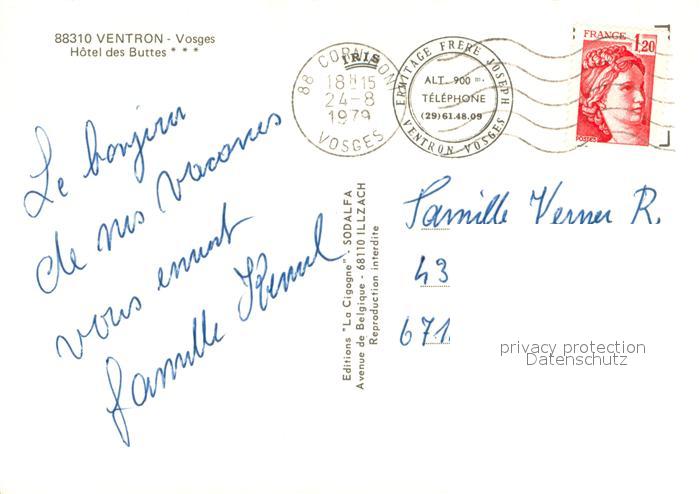 88310 VENTRON - Vosges
Hôtel des Buttes * * *
88 CORNIMONT
IRIS
18H15
24-8
1979
VOSGES
ERMITAGE FRERE JOSEPH
ALT. 900 m.
TÉLÉPHONE
(29) 61.48.09
VENTRON VOSGES
FRANCE
1,20
POSTES
Le bonjour
de nos vacances
vous envoient
famille
Editions "La Cigogne" - SODALFA
Avenue de Belgique - 68110 ILLZACH
Reproduction interdite
Famille Verner R.
43
671
privacy protection
Datenschutz